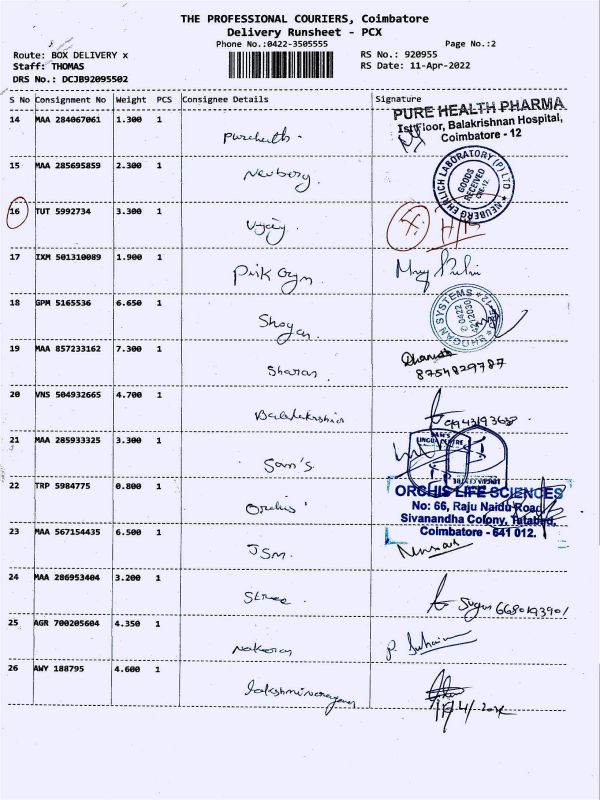 THE PROFESSIONAL COURIERS, Coimbatore
Delivery Runsheet - PCX
Phone No.:0422-3505555
Page No.:2
Route: BOX DELIVERY x
RS No.: 920955
Staff: THOMAS
RS Date: 11-Apr-2022
DRS No.: DCJB92095502
S No Consignment No Weight PCS Consignee Details Signature
PURE HEALTH PHARMA
Ist Floor, Balakrishnan Hospital,
Coimbatore - 12
14 MAA 284067061 1.300 1
Purehealth.
15 MAA 285695859 2.300 1
Neuberg.
NEUBERG EHRLICH LABORATORY (P) LTD
GOODS RECEIVED CBE-12.
16 TUT 5992734 3.300 1
Vijay.
17 IXM 501310089 1.900 1
Pink
18 GPM 5165536 6.650 1
BHOGAN SYSTEMS
19 MAA 857233162 7.300 1
Sharan.
8754829787
20 VNS 504932665 4.700 1
Balalakshmi
21 MAA 285933325 3.300 1
Sam's.
SAM'S
LINGUA CENTRE
22 TRP 5984775 0.800 1
Orchis
ORCHIS LIFE SCIENCES
No: 66, Raju Naidu Road,
Sivanandha Colony, Tatabad,
Coimbatore - 641 012.
23 MAA 567154435 6.500 1
JSM.
24 MAA 286953404 3.200 1
Shree.
25 AGR 700205604 4.350 1
26 AWY 188795 4.600 1
Lakshminarayana